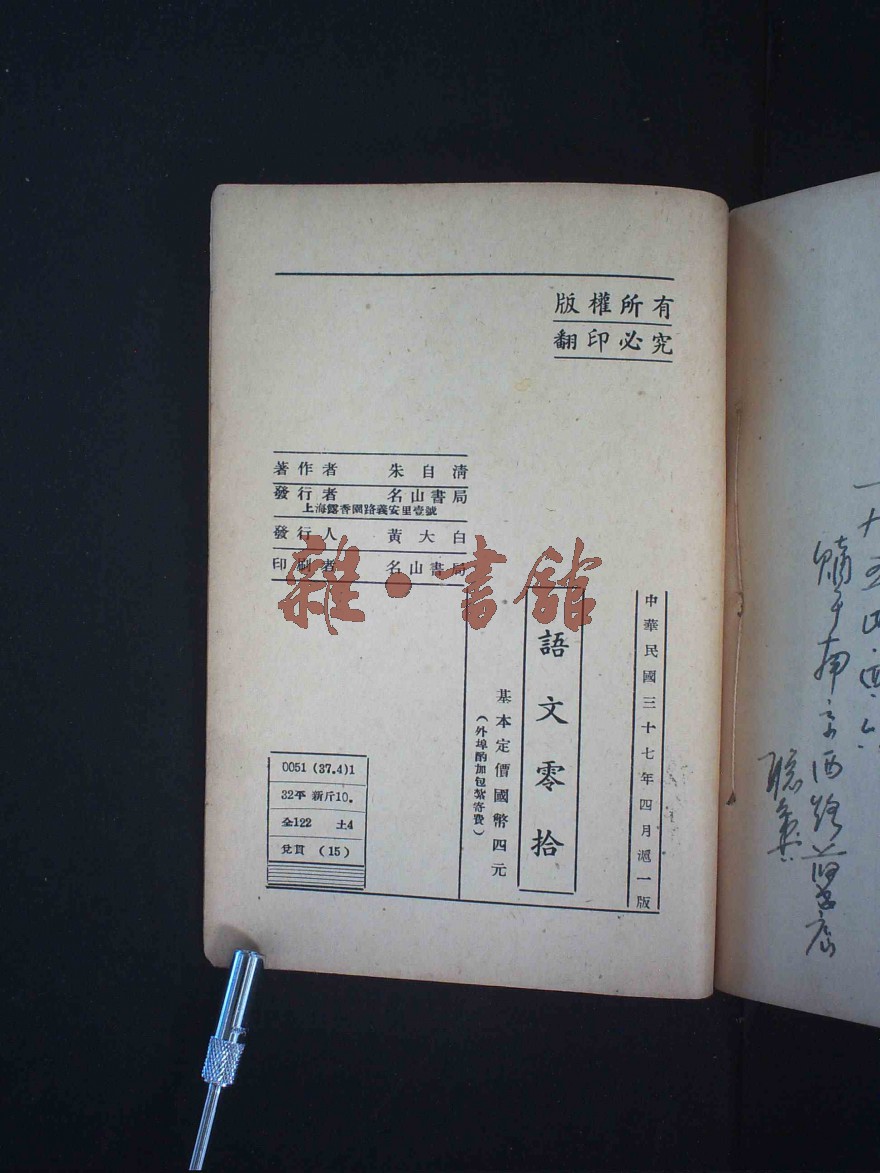 版權所有
翻印必究
著作者 朱自清
發行者 名山書局
上海露香園路義安里壹號
發行人 黃大白
印刷者 名山書局
雜·書館
中華民國三十七年四月滬一版
語文零拾
基本定價國幣四元
(外埠酌加包紮寄費)
0051 (37.4)1
32平 新斤10。
全122 土4
兌貫 (15)